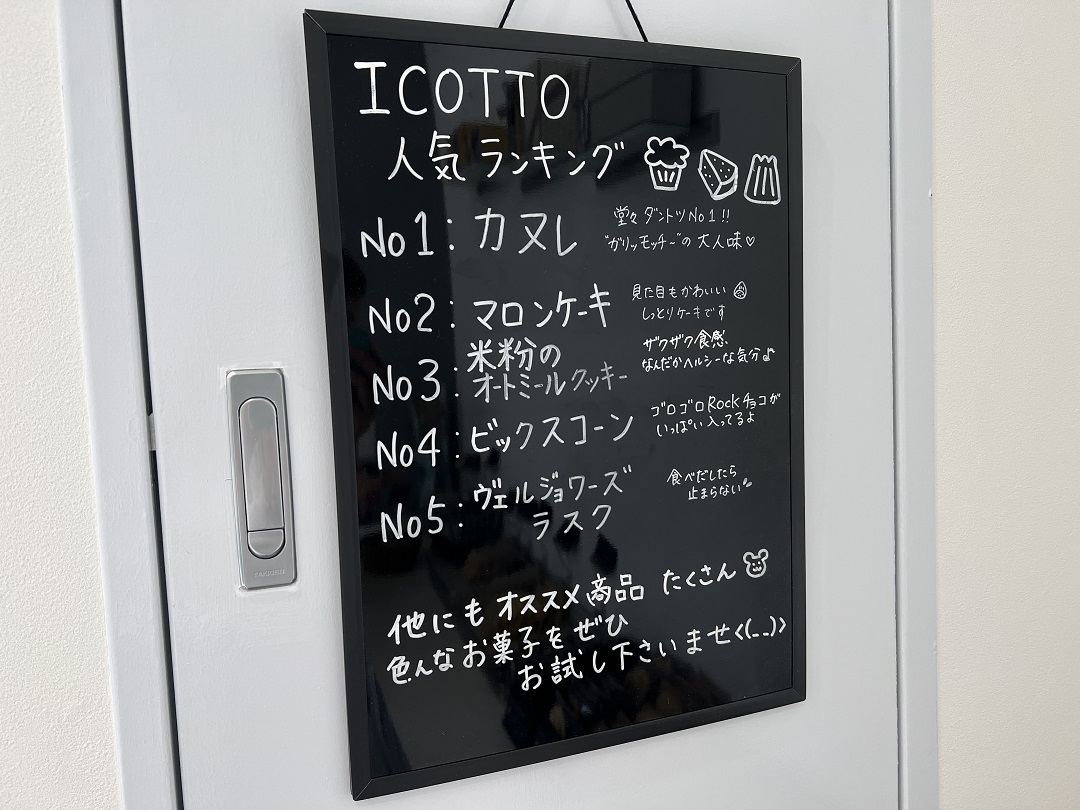 ICOTTO
人気ランキング
No1：カヌレ
堂々ダントツNo1!!
"ガリッモッチ〜"の大人味♡
No2：マロンケーキ
見た目もかわいい
しっとりケーキです
No3：米粉の
オートミールクッキー
ザクザク食感
なんだかヘルシーな気分♪
No4：ビックスコーン
ゴロゴロRockチョコが
いっぱい入ってるよ
No5：ヴェルジョワーズ
ラスク
食べだしたら
止まらない
他にもオススメ商品たくさん
色んなお菓子をぜひ
お試し下さいませ<(_ _)>